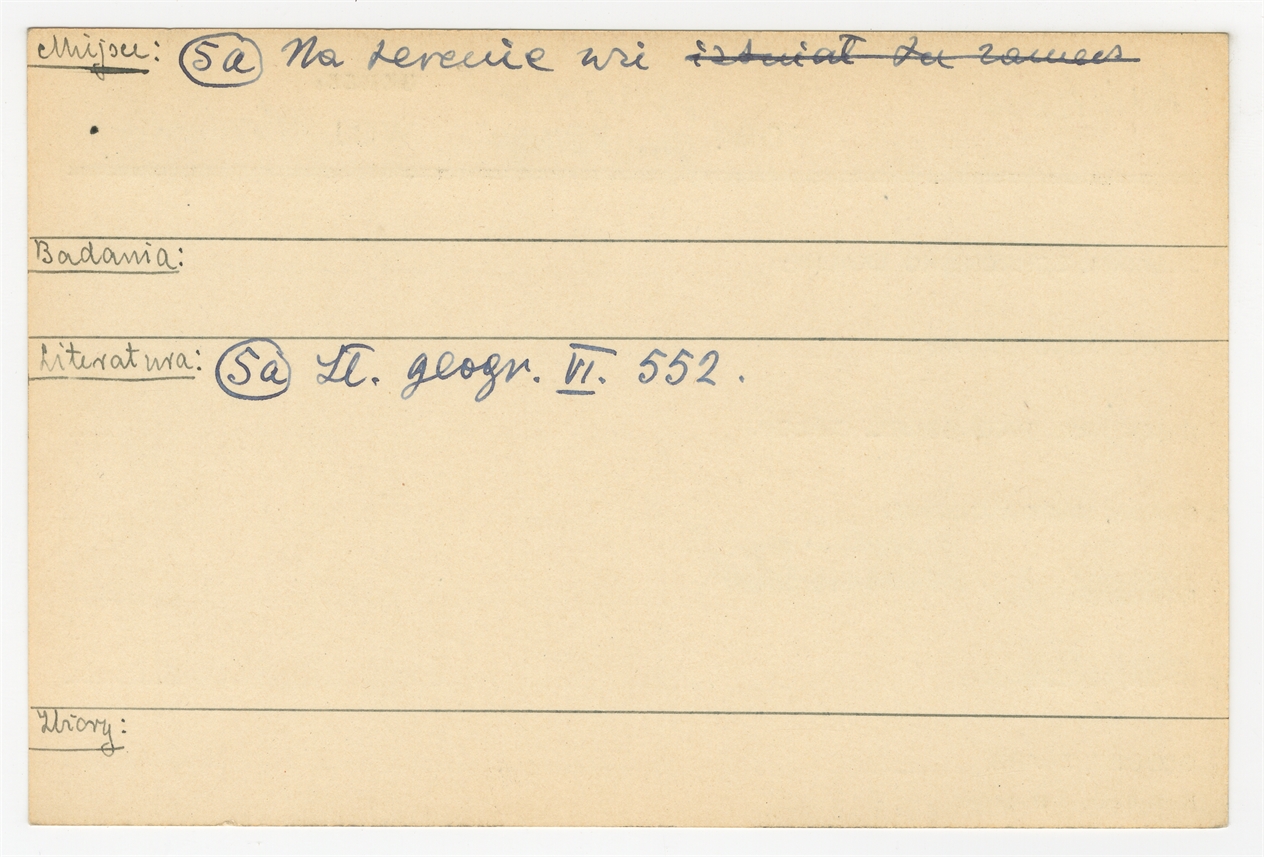 Miejsce: 5a Na terenie wsi istniał tu zamek
Badania:
Literatura: 5a Sł. geogr. VI. 552.
Zbiory: